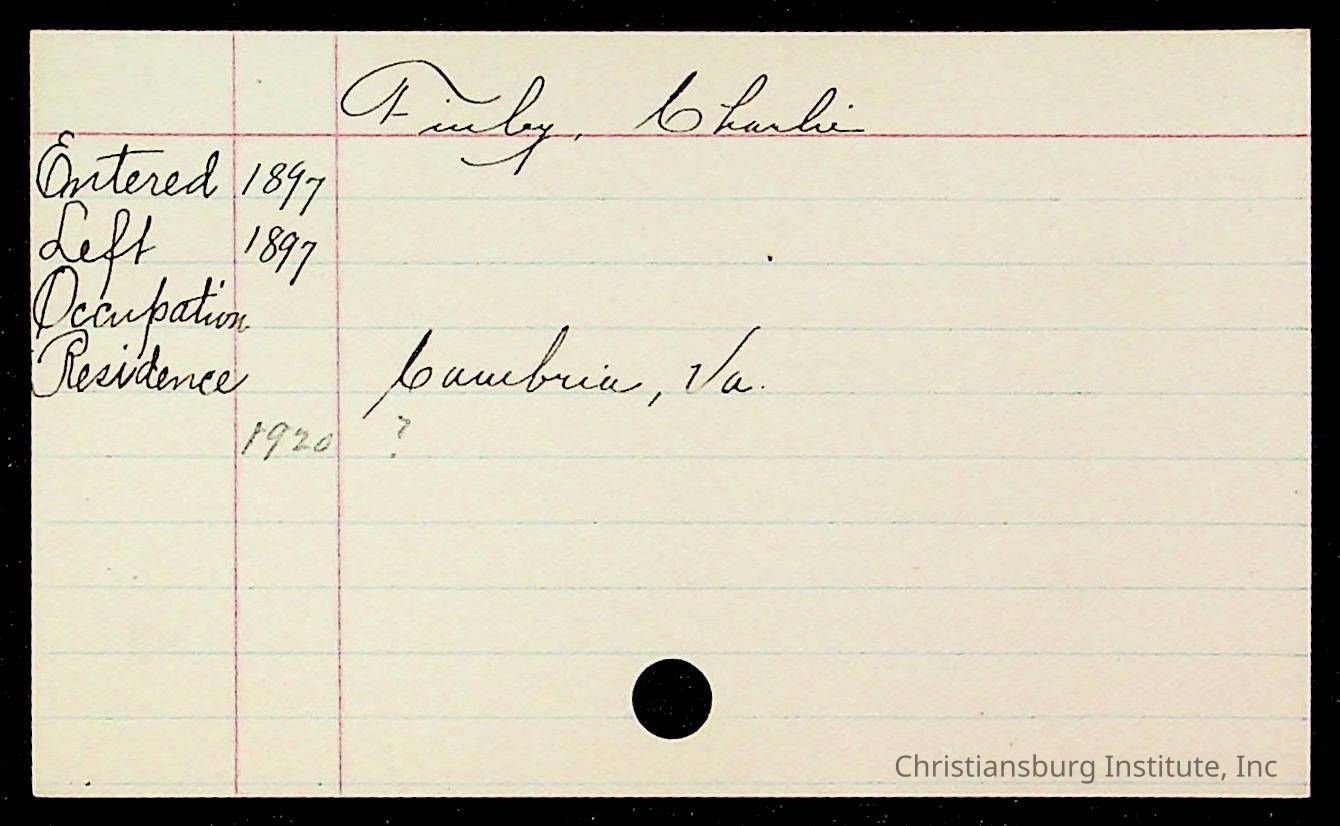 Finley, Charlie
Entered 1897
Left 1897
Occupation
Residence Cambria, Va.
1920 ?
Christiansburg Institute, Inc